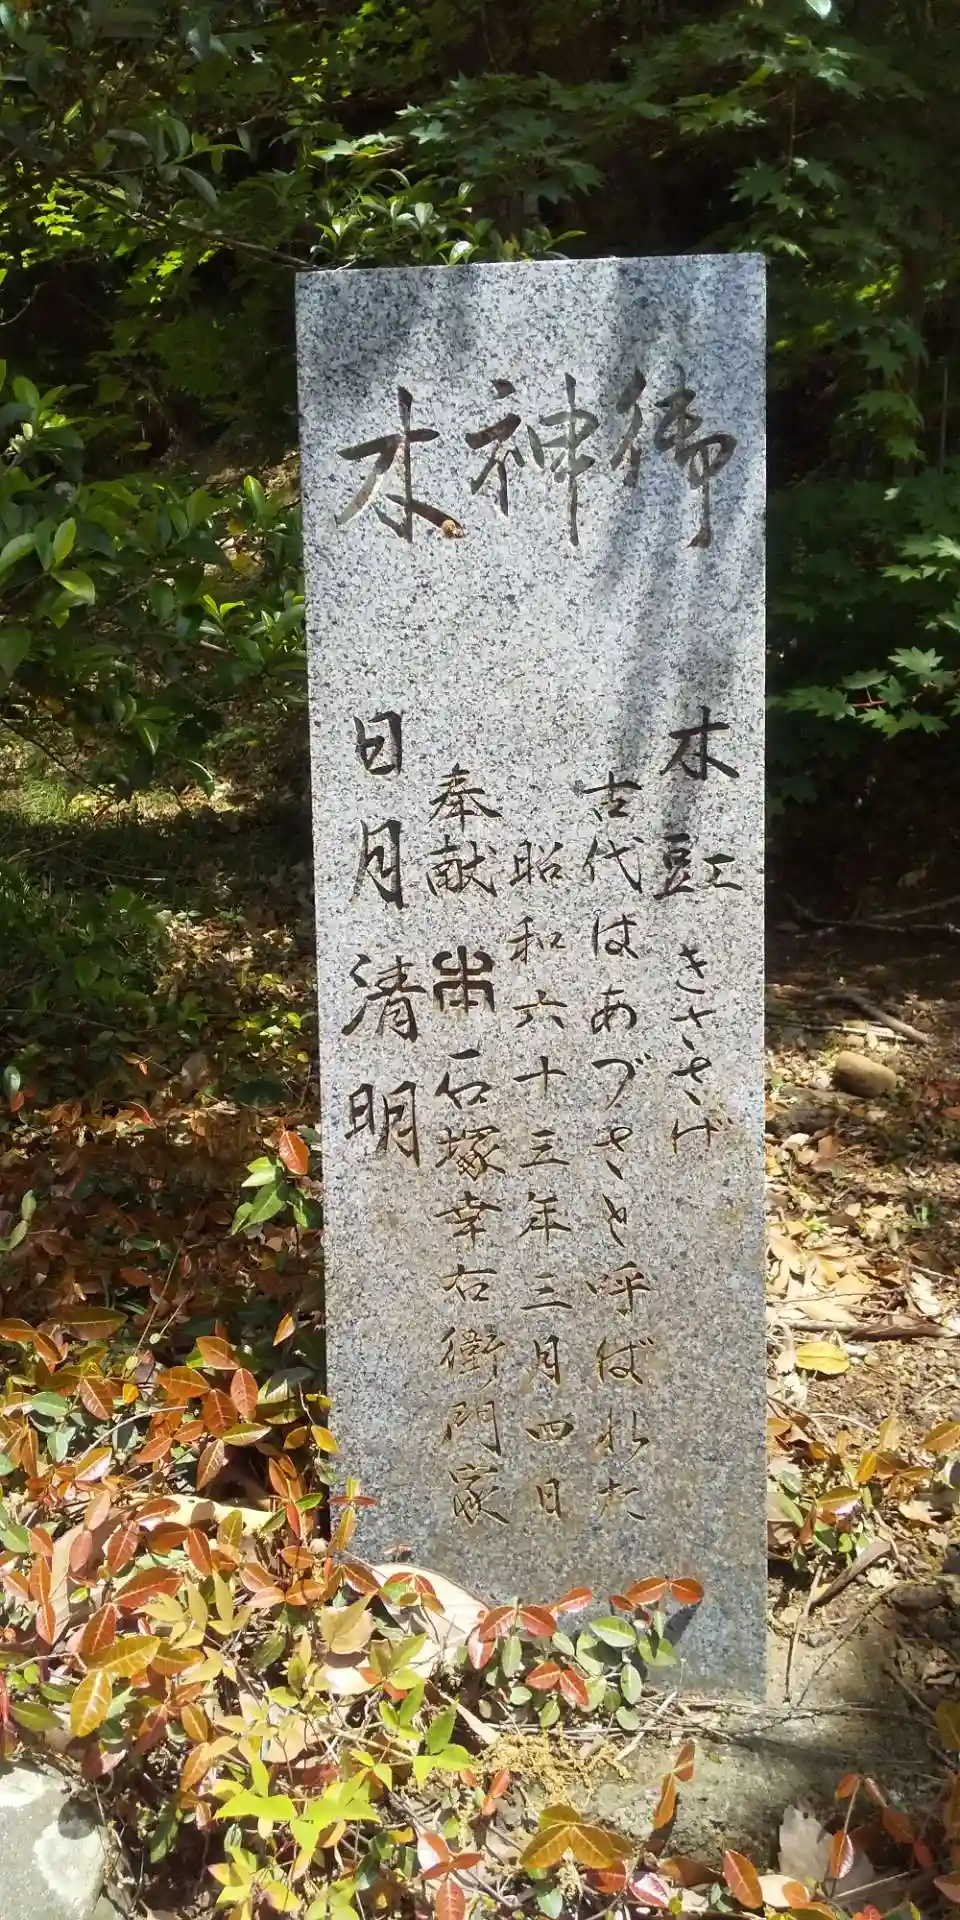 御神木
木豇 きささげ
古代はあづさと呼ばれた
昭和六十三年三月四日
奉献 石塚幸右衛門家
日月清明